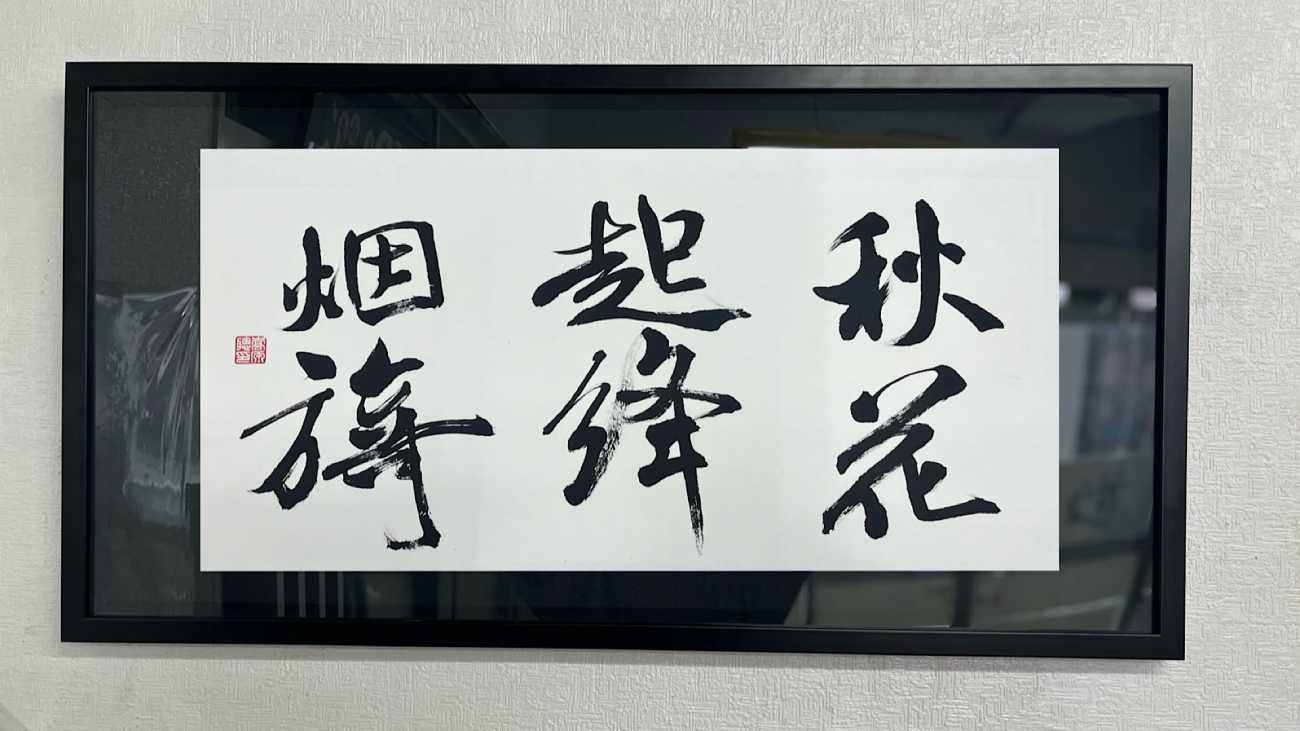 秋花
起绛
烟旖